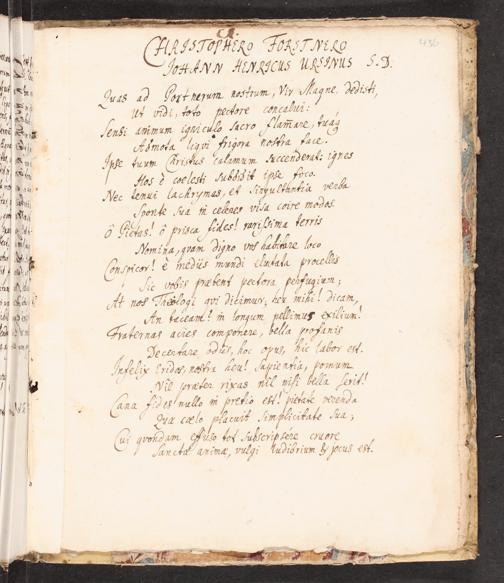 CHRISTOPHERO FORSTNERO
JOHANN HENRICUS URSINUS S.D.
436
Quas ad Portnerum nostrum, Vir Magne, dedisti,
Ut vidi, toto pectore concalui:
Sensi animum igniculo sacro flam̄are, tuáq
Admota liqvi frigora nostra face.
Ipse tuum Christus calamum succenderat: ignes
Hos è coelesti subdidit ipse foco.
Nec tenui lachrymas, et singultantia verba
Sponte sua in visa coire modos
ô Pietas! ô prisca fides! rarissima terris
Nomina, quam digno vos habitare loco
Conspicor! è mediis mundi eluctata procellis
Sic vobis praebent pectora perfugium;
At nos Theologi qvi dicimur, heu mihi! dicam,
An taceam? in longum pellimus exilium!
Fraternas acies componere, bella profanis
Decertare odiis, hoc opus, hic labor est.
Infelix Eridos, nostra heu! Sapientia, pomum
Nil praeter rixas nil nisi bella serit!
Cana fides nullo in pretio est! pietate verenda
Qua caelo placuit simplicitate sua;
Cui qvondam effuso tot subscripsere cruore
Sanctae animae, vulgi ludibrium & jocus est.